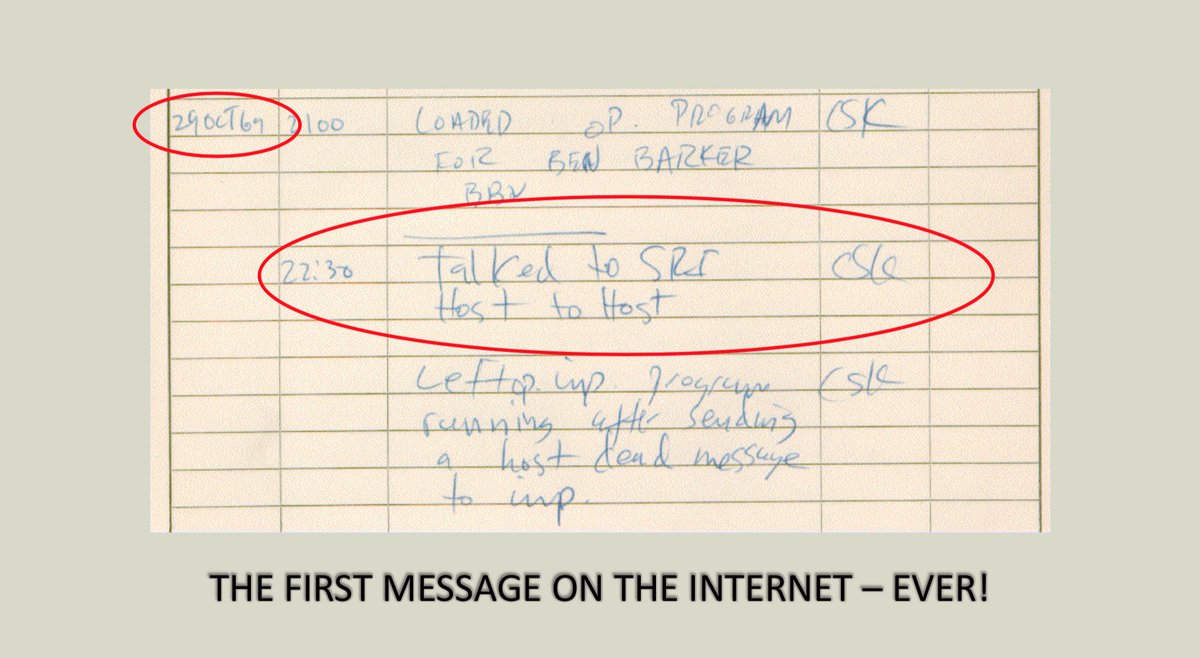 29OCT69 2100 LOADED OP. PROGRAM CSK
FOR BEN BARKER
BBN
22:30 Talked to SRI CSK
Host to Host
Left op. imp. program CSK
running after sending
a host dead message
to imp.
THE FIRST MESSAGE ON THE INTERNET – EVER!